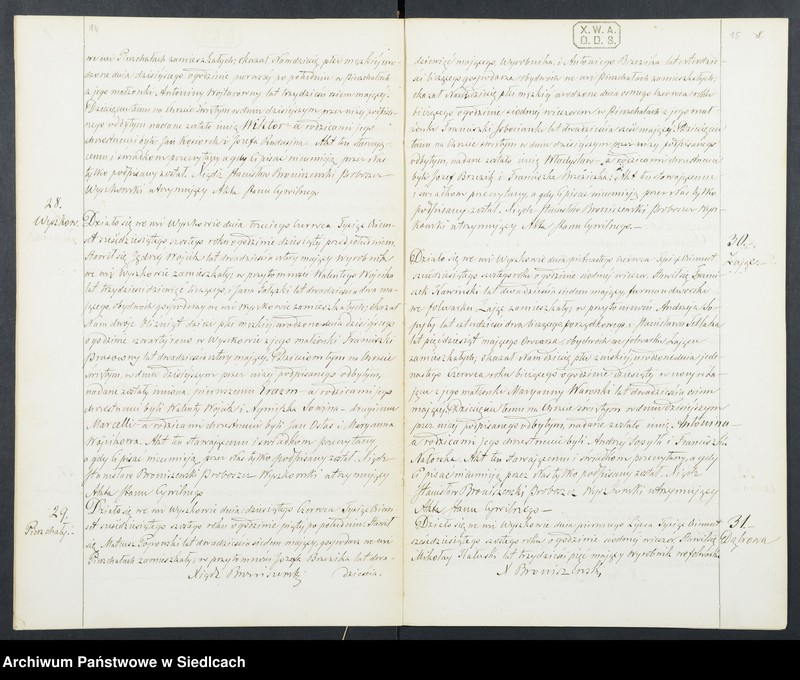 14
we wsi Pierzchałach zamieszkałych; okazał Nam dziecię płci męzkiéj uro-
dzone dnia dzisiejszego o godzinie pierwszej po południu w Pierzchałach
z jego małżonki Antoniny Wojtasowny lat trzydzieści ośm mającéj
Dziecięciu temu na Chrzcie Świętym w dniu dzisiejszym przez niżéj podpisa-
nego odbytym nadane zostało imię Wiktor a rodzicami jego
chrzestnemi byli Jan i Józefa. Akt ten stawają-
cemu i świadkom przeczytany a gdy ci pisać nieumieją przez Nas
tylko podpisany został. Xiądz Stanisław Broniszewski Proboszcz
Wyszkowski utrzymujący Akta Stanu Cywilnego
28.
Wyszków.
Działo się we wsi Wyszkowie dnia trzeciego Czerwca Tysiąc Ośm-
set sześćdziesiątego szóstego roku o godzinie dziesiątéj przed południem.
Stawił się Jędrzéj Wójcik lat dwadzieścia cztery mający Wyrobnik
we wsi Wyszkowie zamieszkały, w przytomności Walentego Wójcika
lat trzydzieści dziewięć liczącego, i Jana lat dwadzieścia dwa ma-
jącego, obydwóch gospodarzy we wsi Wyszkowie zamieszkałych; okazał
Nam dwoje Bliźniąt dzieci płci męzkiéj, urodzone dnia dzisiejszego
o godzinie czwartéj rano w Wyszkowie z jego małżonki Franciszki
lat dwadzieścia cztery mającéj. Dzieciom tym na Chrzcie
Świętym, w dniu dzisiejszym przez niżéj podpisanego odbytym,
nadane zostały imiona, pierwszemu Erazm a rodzicami jego
chrzestnemi byli Walenty Wójcik i Agnieszka drugiemu
Marcelli a rodzicami chrzestnemi byli Jan i Maryanna
Wójcikowa. Akt ten stawającemu i świadkom przeczytany,
a gdy ci pisać nieumieją przez Nas tylko podpisany został. Xiądz
Stanisław Broniszewski Proboszcz Wyszkowski utrzymujący
Akta Stanu Cywilnego
29
Pierzchały.
Działo się we wsi Wyszkowie dnia dziesiątego Czerwca Tysiąc Ośm-
set sześćdziesiątego szóstego roku o godzinie piątéj po południu. Stawił
się, Mateusz lat dwadzieścia siedm mający, gospodarz we wsi
Pierzchałach zamieszkały, w przytomności Józefa Brzezika lat dwa-
Xiądz Broniszewski dzieścia.
X.W.A.
D.D.S.
15
dziewięć mającego Wyrobnika, i Antoniego Brzezika lat czterdzie-
ści liczącego gospodarza obydwóch we wsi Pierzchałach zamieszkałych;
okazał Nam dziecię płci męzkiéj urodzone dnia ósmego Czerwca roku
bieżącego o godzinie siódmej wieczorem w Pierzchałach z jego mał-
żonki Franciszki lat dwadzieścia sześć mającéj. Dziecięciu
temu na Chrzcie Świętym w dniu dzisiejszym przez niżéj podpisanego
odbytym, nadane zostało imię Władysław a rodzicami chrzestnemi
byli Józef Brzezik i Franciszka Brzezicka. Akt ten stawającemu
i świadkom przeczytany, a gdy ci pisać nieumieją przez Nas tylko
podpisany został. Xiądz Stanisław Broniszewski Proboszcz Wysz-
kowski utrzymujący Akta Stanu Cywilnego
30.
Zając.
Działo się we wsi Wyszkowie dnia Czerwca Tysiąc Ośmset
sześćdziesiątego szóstego roku o godzinie siódmej wieczór. Stawił się Franci-
szek lat dwadzieścia siedm mający, furman dworski
w folwarku Zając zamieszkały, w przytomności Andrzeja So-
lat czterdzieści dwa liczącego porządkowego i Stanisława
lat pięćdziesiąt mającego Owczarza, obydwóch w folwarku Zającu
zamieszkałych; okazał Nam dziecię płci męzkiéj urodzone dnia jede-
nastego Czerwca roku bieżącego o godzinie dziesiątéj w nocy w Za-
jącu z jego małżonki Maryanny lat dwadzieścia ośm
mającéj. Dziecięciu temu na Chrzcie Świętym w dniu dzisiejszym
przez niżéj podpisanego odbytym, nadane zostało imię Antonina
a rodzicami jego chrzestnemi byli Andrzéj i Franciszka
Akt ten stawającemu i świadkom przeczytany, a gdy
ci pisać nieumieją przez Nas tylko podpisany został. Xiądz
Stanisław Broniszewski Proboszcz Wyszkowski utrzymujący
Akta Stanu Cywilnego
31.
Dąbowa
Działo się we wsi Wyszkowie dnia pierwszego Lipca Tysiąc Ośmset
sześćdziesiątego szóstego roku o godzinie siódmej wieczór. Stawił się
Mikołaj lat trzydzieści pięć mający Wyrobnik w folwarku
X Broniszewski
Archiwum Państwowe w Siedlcach